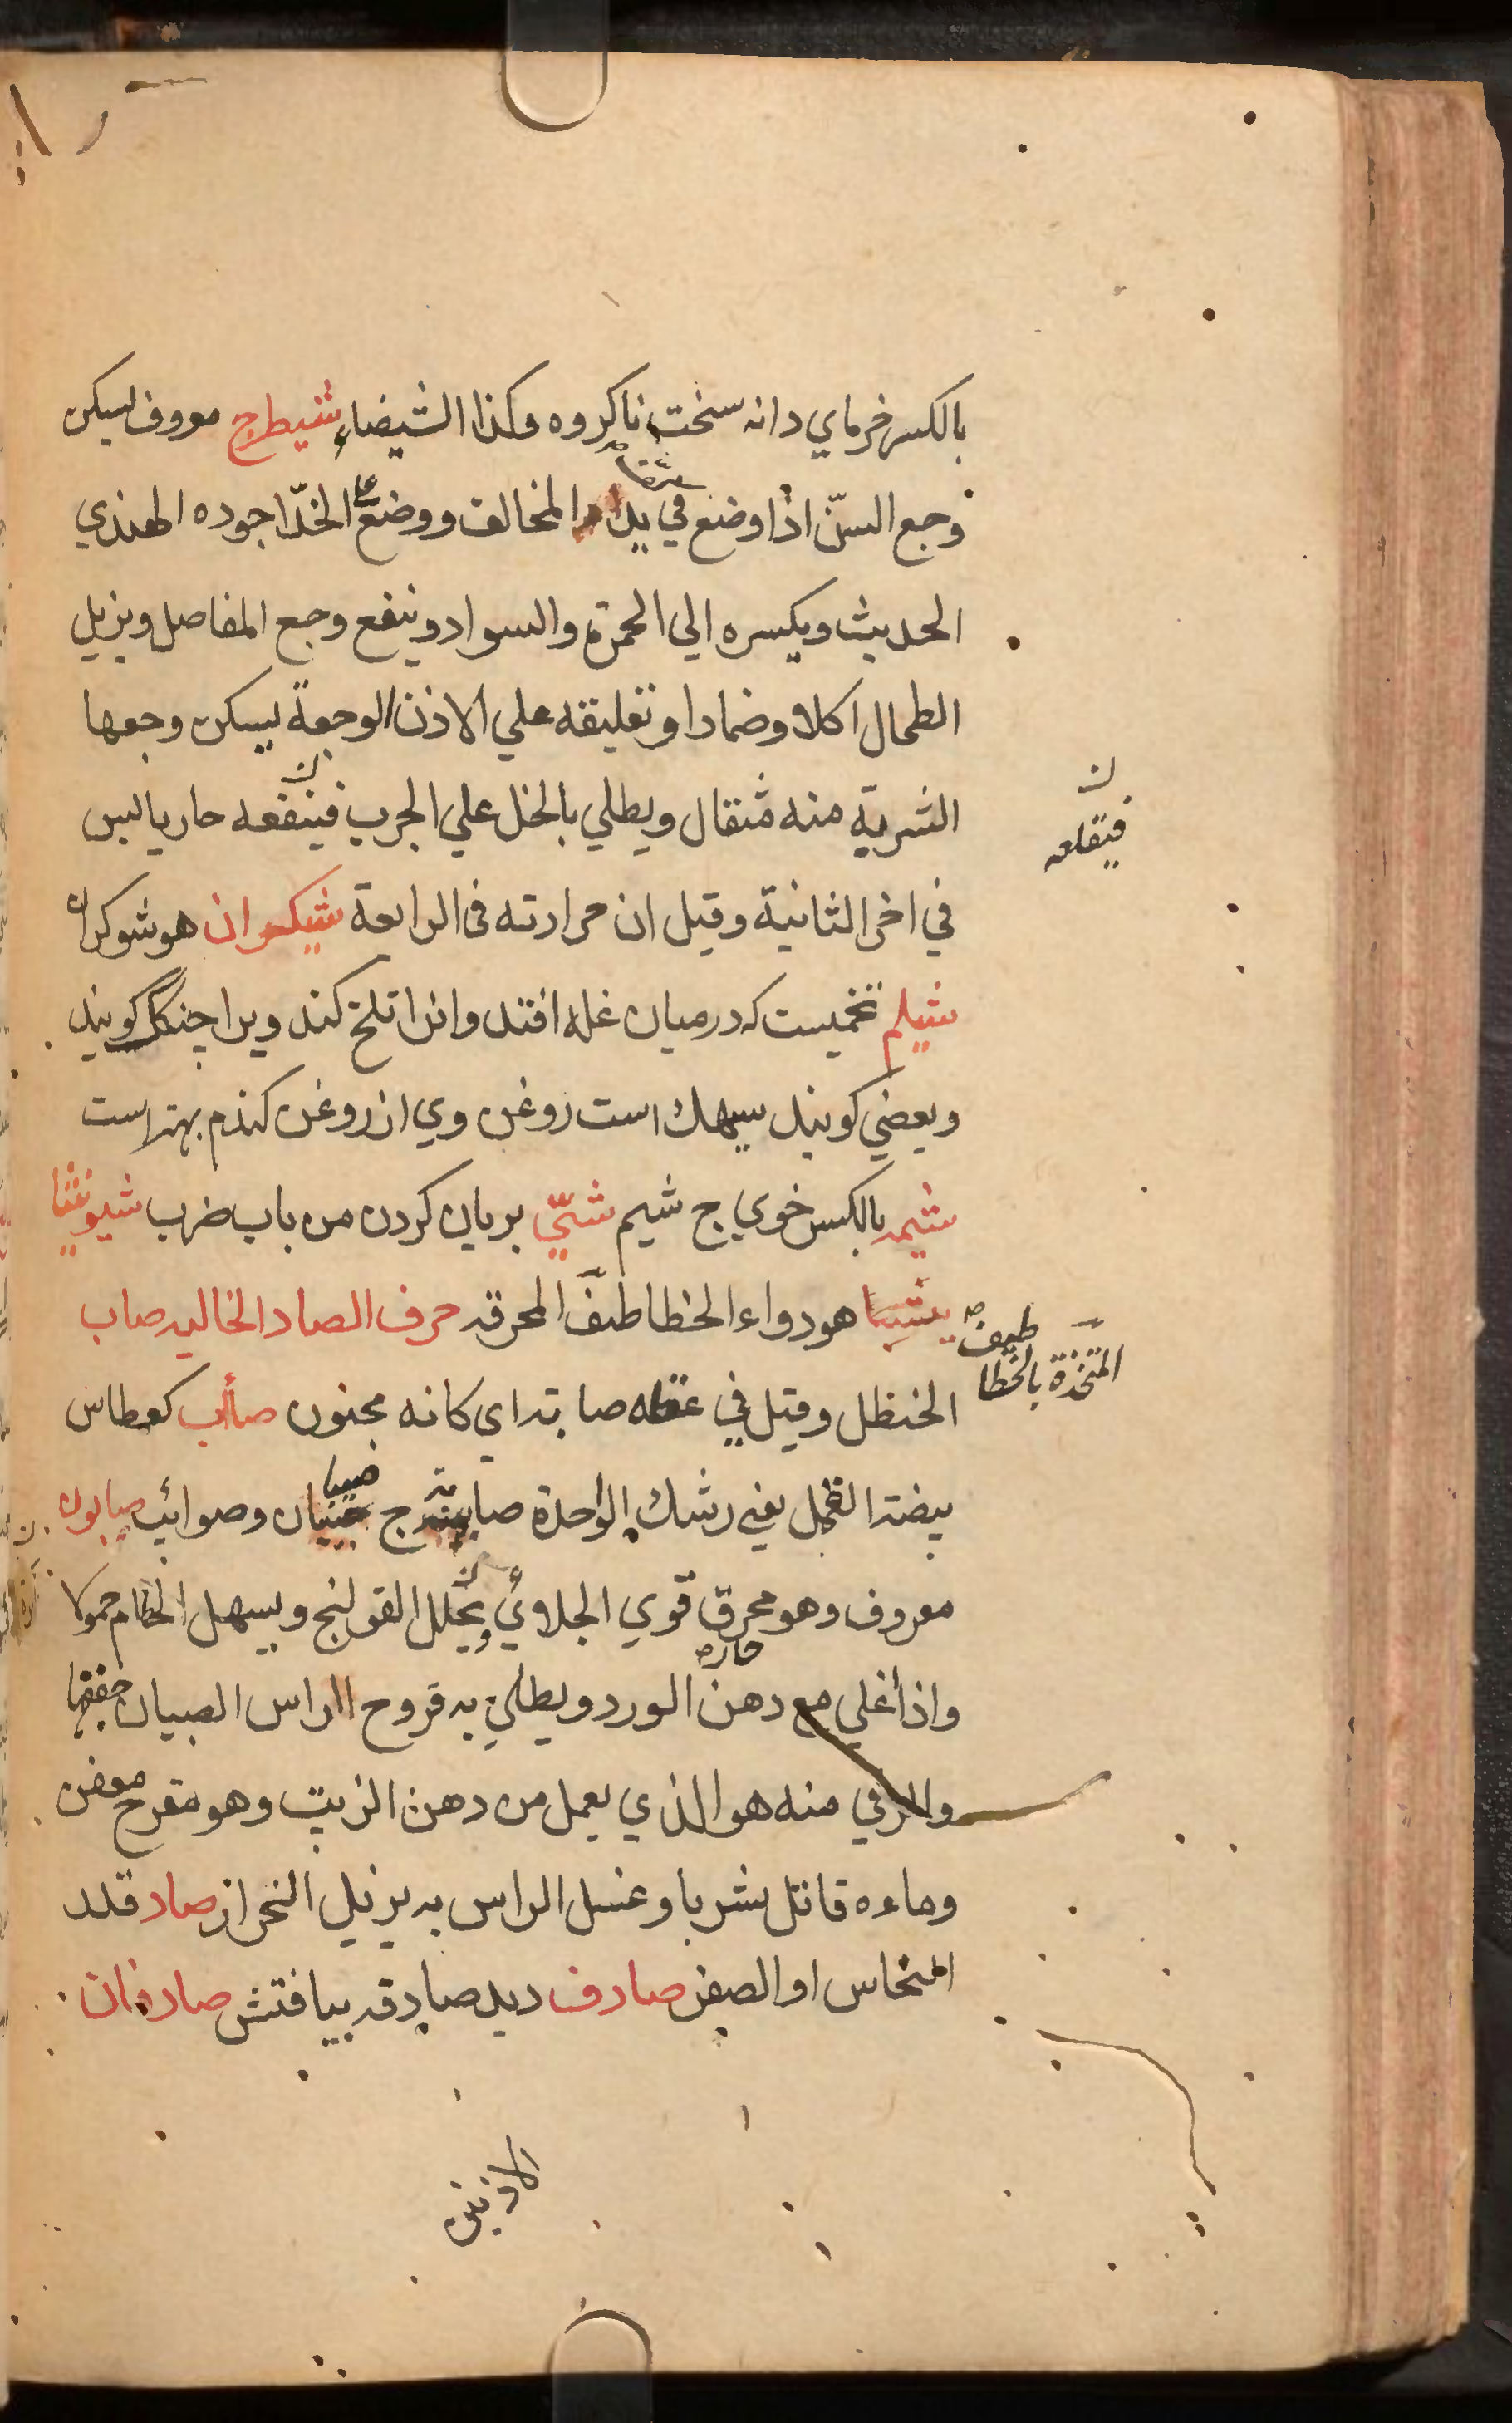 بالكسر خرماي دانه سخت ناكروه وكذا الشيضاء شيطرج معروف يسكن
وجع السنّ اذا وضع في يد المخالف ووضع على الخدّ اجوده الهندي
الحديث ويكسره الي الحمرة والسواد وينفع وجع المفاصل ويزيل
الطحال اكلا وضمادا وتعليقه علي الاذن الوجعة يسكن وجعها
الشربة منه مثقال ويطلي بالخل علي الجرب فينفعه حار يابس
ن
فيقلعه
في اخر الثانية وقيل ان حرارته في الرابعة شيكران هو شوكران
شيلم تخميست كه درميان غله افتد وانرا تلخ كند ويرا جنكك كويند
وبعضي كويند سيهك است روغن وي از روغن كندم بهتر است
شيمه بالكسر خوي ج شيم شيّ بريان كردن من باب ضرب
هو دواء الخطاطيف المحرقة حرف الصاد الخالية صاب
المتخذة بالخطاطيف
الحنظل وقيل في عقله صابة اي كانه مجنون صأب كعطاس
بيضة القمل يعني رشك الواحدة صابة ج صيبان وصوائب صابون
معروف وهو محرق قوي الجلاوي يحلل القولنج ويسهل الخام حمولا
واذا اغلي مع دهن الورد ويطلي به قروح الراس الصبيان جففها
والرقي منه هو الذي يعمل من دهن الزيت وهو مقرح معفن
وماءه قاتل شربا وغسل الراس به يزيل الحزاز صاد قلد
النحاس او الصفر صادف ديد صادقه بيافتش صادفان
الاذنين